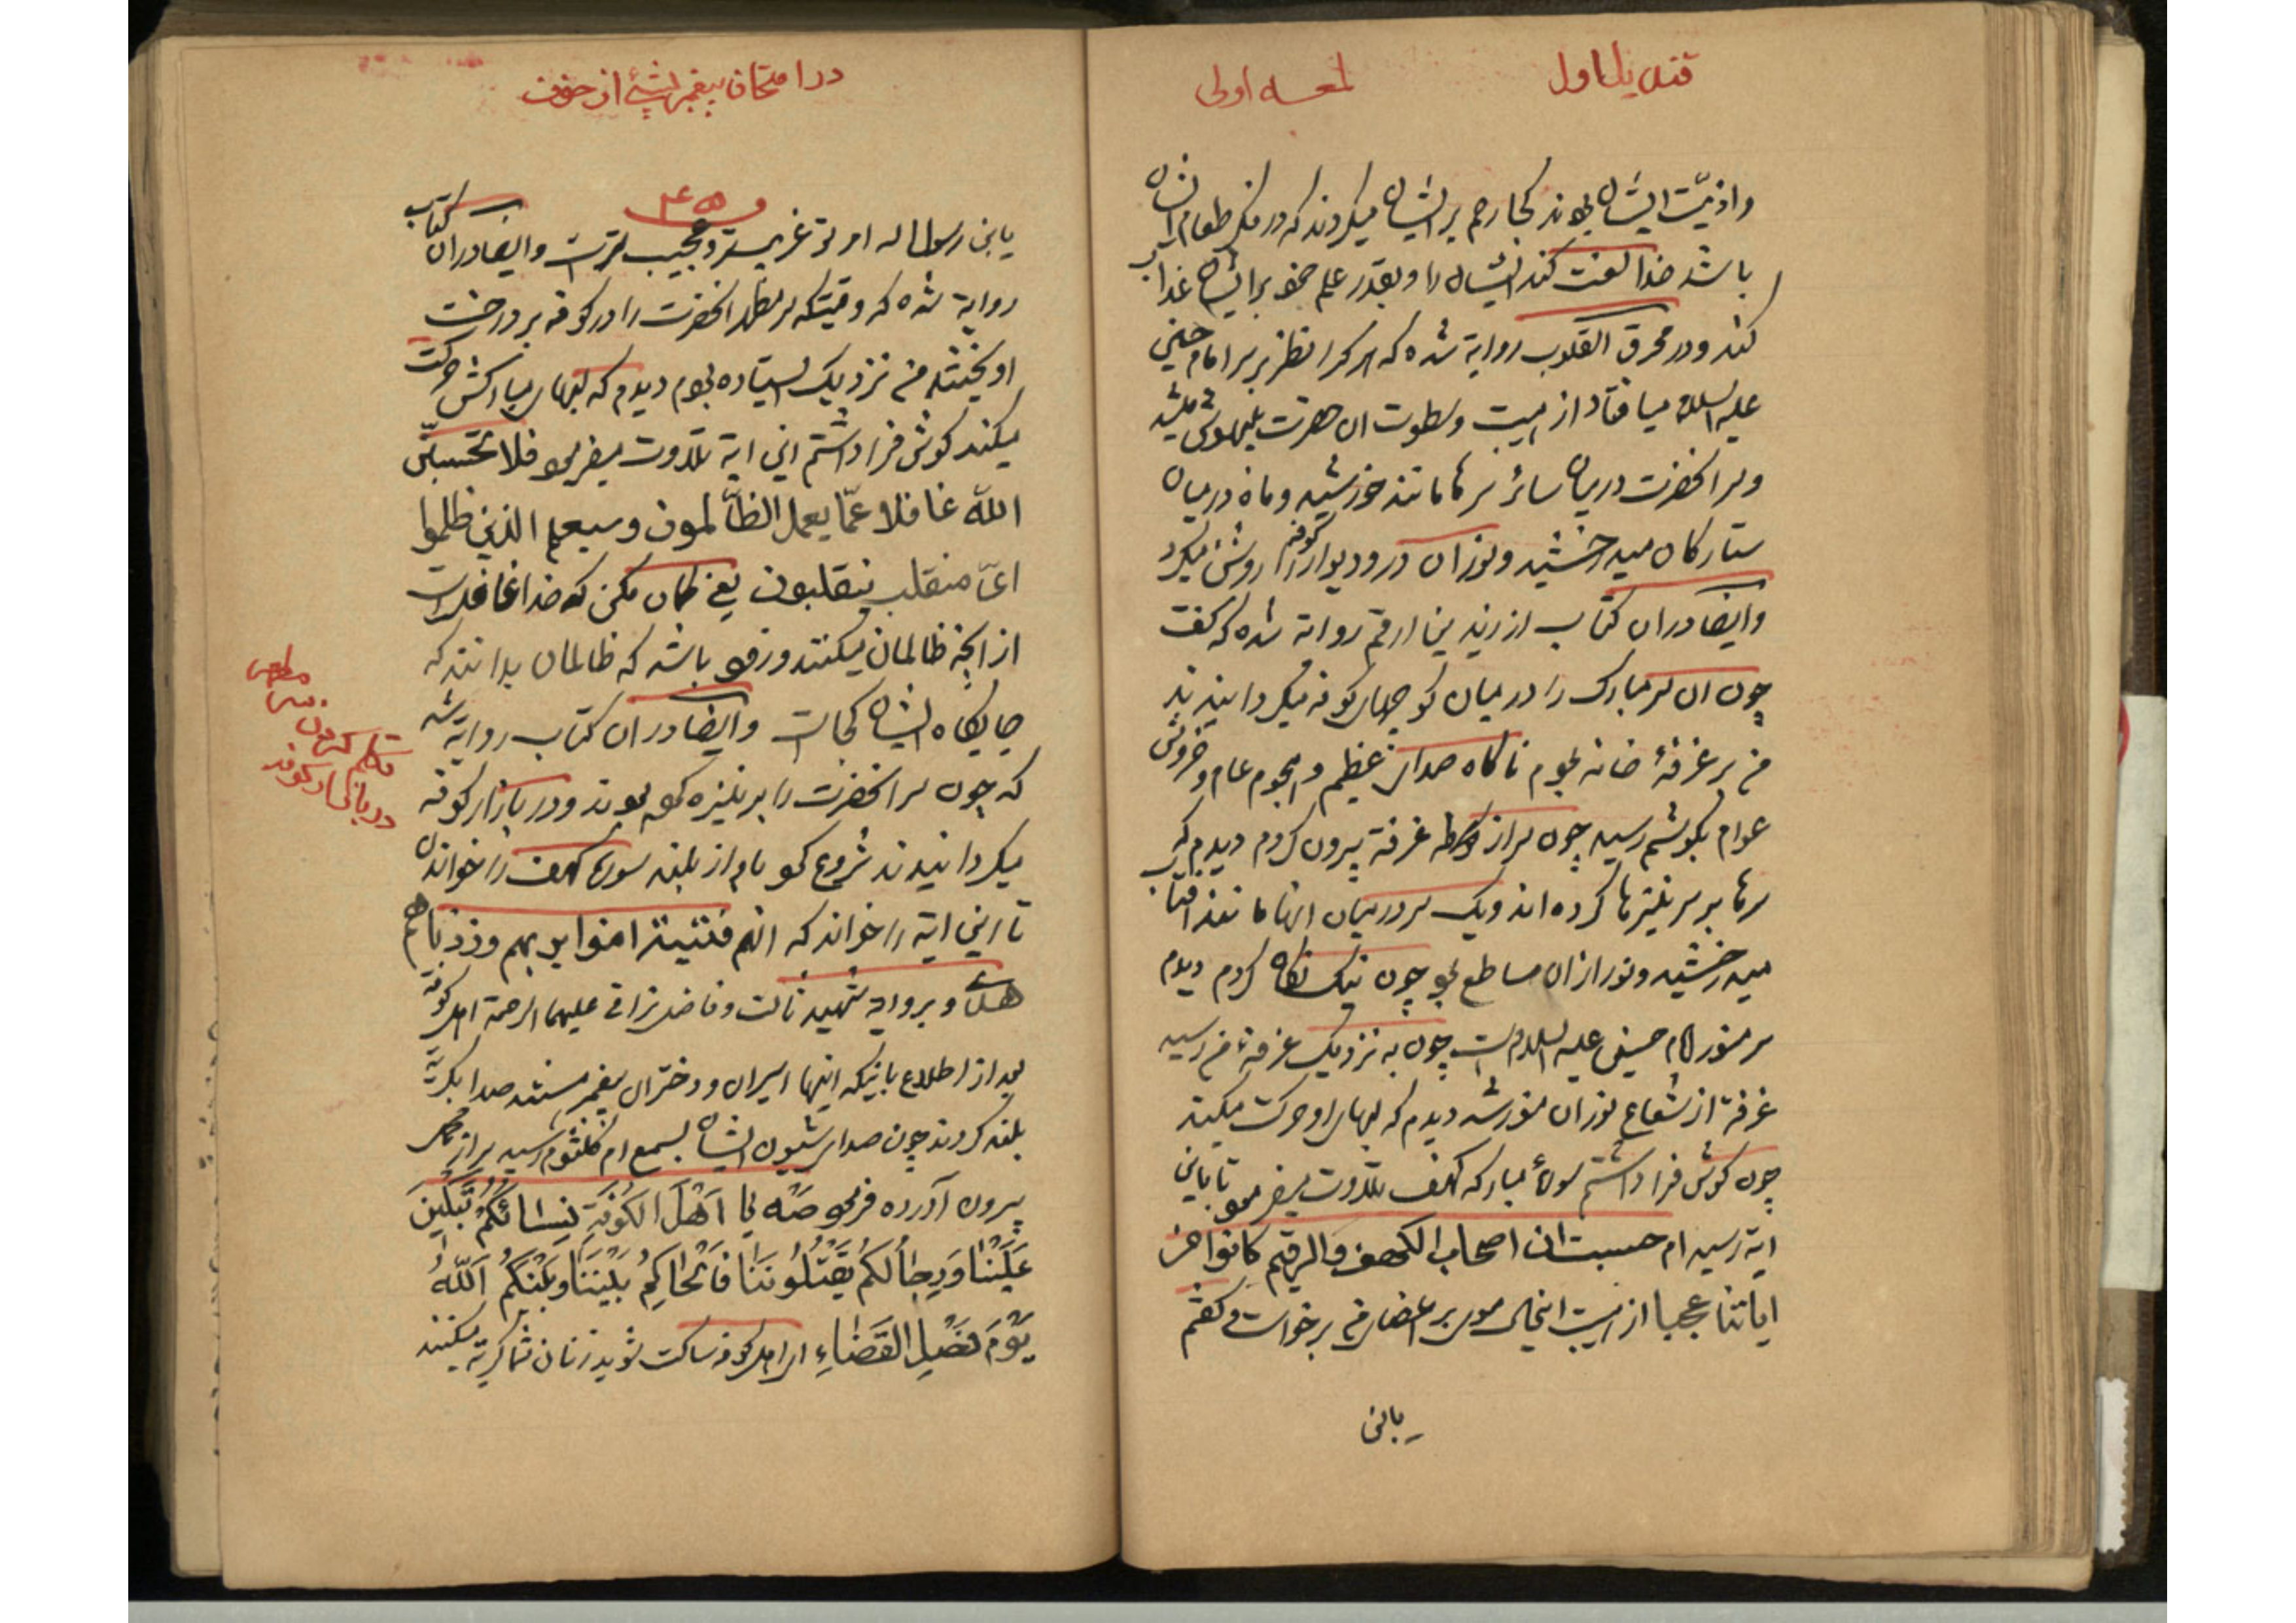 قندیل اول
لمعه اولی
واذیّت ایشان بودند کجا رحم بر ایشان میکردند که در فکر طعام ایشان
باشند خدا لعنت کند ایشان را و بقدر علم خود بر ایشان عذاب
کند ودر محرق القلوب روایة شده که هر کرا نظر بر سر امام حسین
علیه السلام میافتاد از هیبت وسطوت ان حضرت بیهوش میشد
وسر انحضرت در میان سائر سرها مانند خورشید وماه در میان
ستارکان میدرخشید ونور ان در ودیوار کوفه را روشن میکرد
وایضا دران کتاب از زید بن ارقم روایة شده که کفت
چون ان سر مبارک را در میان کوچهای کوفه میکردانیدند
من بر غرفهٔ خانه بودم ناکاه صدای عظیم وهجوم عام وخروش
عوام بکوشم رسید چون سر از غرفة بیرون کردم دیدم که
سرها بر سر نیزها کرده اند ویک سر در میان انها مانند افتاب
میدرخشید ونور ازان ساطع بود چون نیک نکاه کردم دیدم
سر منور امام حسین علیه السلام است چون به نزدیک غرفهٔ من رسید
غرفة از شعاع نور ان منور شد دیدم که لبهای او حرکت میکند
چون کوش فرا داشتم سورهٔ مبارکه کهف تلاوت میفرمود تا باین
ایة رسید ام حسبت ان اصحاب الکهف والرقیم کانوا من
ایاتنا عجبا از هیبت انحال موی بر اعضای من برخواست وکفتم
یابن
در امتحان پیغمبر بشیء از خوف
یابن رسول الله امر تو غریبتر وعجیب تر است وایضا دران کتاب
روایة شده که وقتیکه سر مطهر انحضرت را در کوفه بر درخت
اویختند من نزدیک ایستاده بودم دیدم که لبهای مبارکش حرکت
میکند کوش فرا داشتم این ایة تلاوت میفرمود فلا تحسبنّ
اللّه غافلا عمّا یعمل الظّالمون وسیعلم الذین ظلموا
ایّ منقلب ینقلبون یعنی کمان مکن که خدا غافل است
از انچه ظالمان میکنند وزود باشد که ظالمان بدانند که
جایکاه ایشان کجاست وایضا دران کتاب روایة شده
که چون سر انحضرت را بر نیزه کرده بودند ودر بازار کوفه
میکردانیدند شروع کرد باواز بلند سوره کهف را خواندن
تا این ایة را خواند که انهم فتیة امنوا بربهم وزدناهم
هدی وبروایة شهید ثالث وفاضل نراقی علیهما الرحمة اهل کوفه
بعد از اطلاع باینکه اینها اسیران ودختران پیغمبر هستند صدا بکریة
بلند کردند چون صدای شیون ایشان بسمع ام کلثوم رسید سر از محمل
بیرون آورده فرمود صَه یا اَهْلَ الکُوفَةِ نِسَائُکُمْ تَبْکِینَ
عَلَیْنَا وَرِجَالُکُمْ یَقْتُلُونَنَا فَالْحَاکِمُ بَیْنَنَا وَبَیْنَکُمُ اللّهُ
یَوْمَ فَصْلِ القَضَاءِ ای اهل کوفه ساکت شوید زنان شما کریة میکنند
تکلم کردن
در بازار کوفه